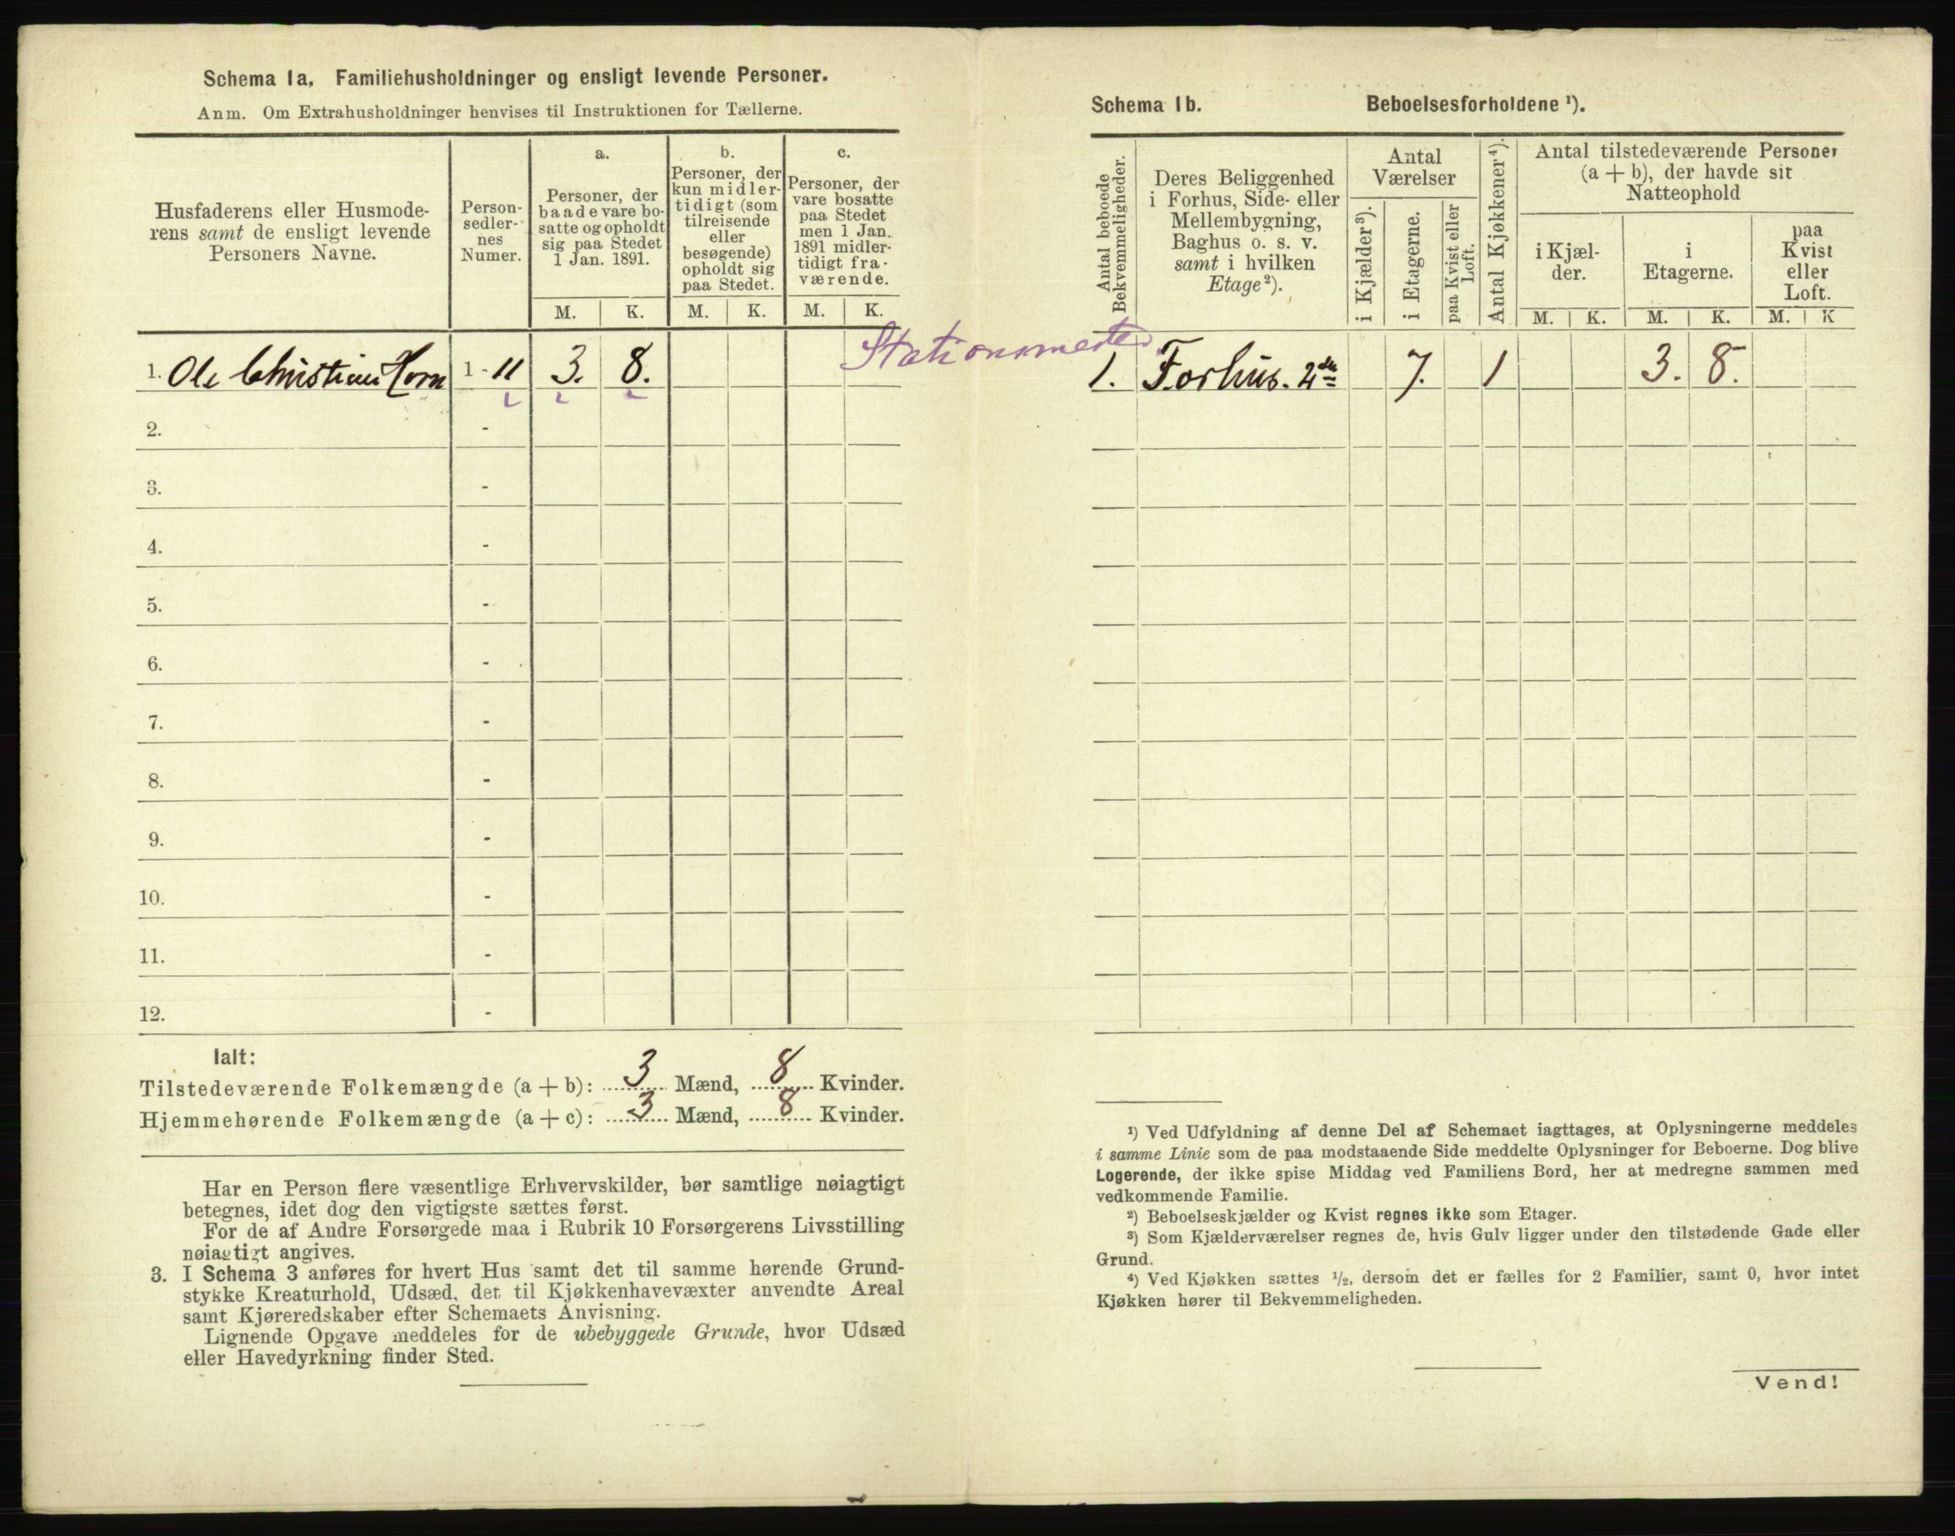 Schema 1a. Familiehusholdninger og ensligt levende Personer.
Anm. Om Extrahusholdninger henvises til Instruktionen for Tællerne.
Husfaderens eller Husmode-
rens samt de ensligt levende
Personers Navne.
Person-
sedler-
nes
Numer.
a.
Personer, der
baade vare bo-
satte og opholdt
sig paa Stedet
1 Jan. 1891.
b.
Personer, der
kun midler-
tidigt (som
tilreisende
eller
besøgende)
opholdt sig
paa Stedet.
c.
Personer, der
vare bosatte
paa Stedet
men 1 Jan.
1891 midler-
tidigt fra-
værende.
M. K. M. K. M. K.
Stationsmester
1. Ole Christian Horn 1 - 11 3. 8.
2. -
3. -
4. -
5. -
6. -
7. -
8. -
9. -
10. -
11. -
12. -
Ialt:
Tilstedeværende Folkemængde (a + b): 3 Mænd, 8 Kvinder.
Hjemmehørende Folkemængde (a + c): 3 Mænd, 8 Kvinder.
Har en Person flere væsentlige Erhvervskilder, bør samtlige nøiagtigt
betegnes, idet dog den vigtigste sættes først.
For de af Andre Forsørgede maa i Rubrik 10 Forsørgerens Livsstilling
nøiagtigt angives.
3. I Schema 3 anføres for hvert Hus samt det til samme hørende Grund-
stykke Kreaturhold, Udsæd, det til Kjøkkenhavevæxter anvendte Areal
samt Kjøreredskaber efter Schemaets Anvisning.
Lignende Opgave meddeles for de ubebyggede Grunde, hvor Udsæd
eller Havedyrkning finder Sted.
Schema 1b. Beboelsesforholdene ¹).
Antal beboede
Bekvemmeligheder.
Deres Beliggenhed
i Forhus, Side- eller
Mellembygning,
Baghus o. s. v.
samt i hvilken
Etage ²).
Antal
Værelser
i Kjælder ³).
i Etagerne.
paa Kvist eller
Loft.
Antal Kjøkkener ⁴).
Antal tilstedeværende Personer
(a + b), der havde sit
Natteophold
i Kjæl-
der.
i
Etagerne.
paa
Kvist
eller
Loft.
M. K. M. K. M. K
1. Forhus. 2de 7. 1 3. 8.
¹) Ved Udfyldning af denne Del af Schemaet iagttages, at Oplysningerne meddeles
i samme Linie som de paa modstaaende Side meddelte Oplysninger for Beboerne. Dog blive
Logerende, der ikke spise Middag ved Familiens Bord, her at medregne sammen med
vedkommende Familie.
²) Beboelseskjælder og Kvist regnes ikke som Etager.
³) Som Kjælderværelser regnes de, hvis Gulv ligger under den tilstødende Gade eller
Grund.
⁴) Ved Kjøkken sættes ½, dersom det er fælles for 2 Familier, samt 0, hvor intet
Kjøkken hører til Bekvemmeligheden.
Vend!